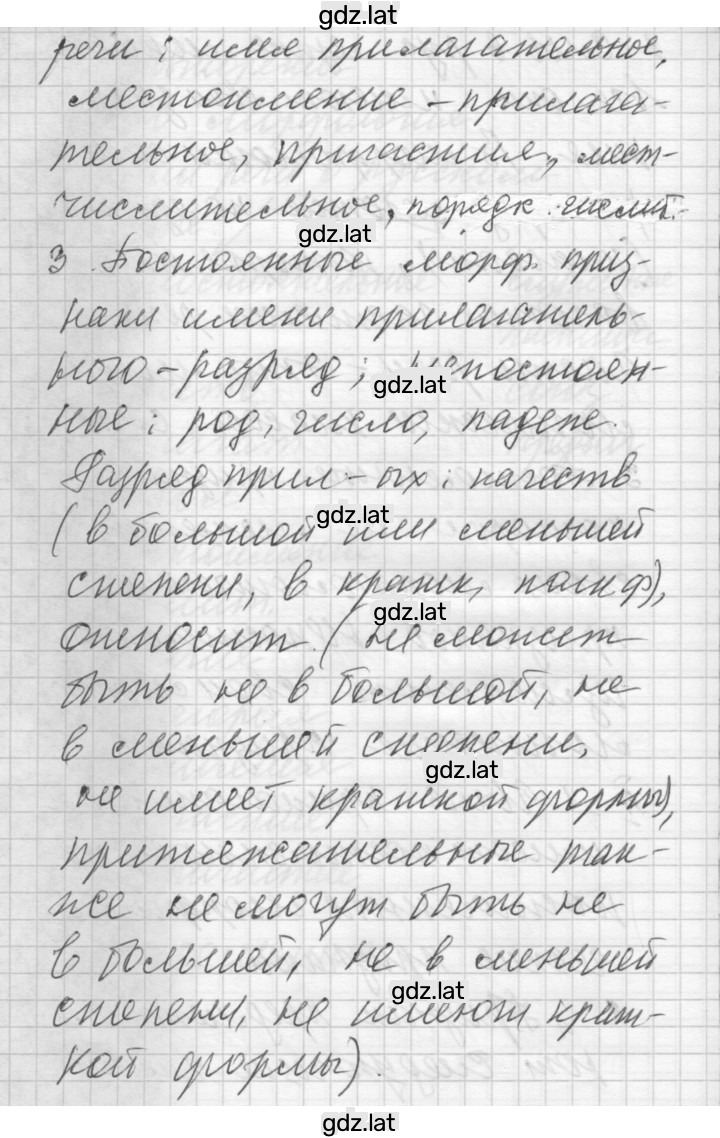 gdz.lat
речи: имя прилагательное,
местоимение - прилага-
тельное, причастия, мест-
числительное, порядк. числит.-
gdz.lat
3. Постоянные морф. приз-
наки имени прилагатель-
ного - разряд; непостоян-
gdz.lat
ные: род, число, падеж.
Разряд прил-ых: качеств
gdz.lat
(в большой или меньшей
степени, в кратк,
gdz.lat
относит. (не может
быть не в большой, не
в меньшей степени,
gdz.lat
не имеет краткой формы),
притяжательные так-
же не могут быть не
в большей, не в меньшей
gdz.lat
степени, не имеют крат-
кой формы).
gdz.lat